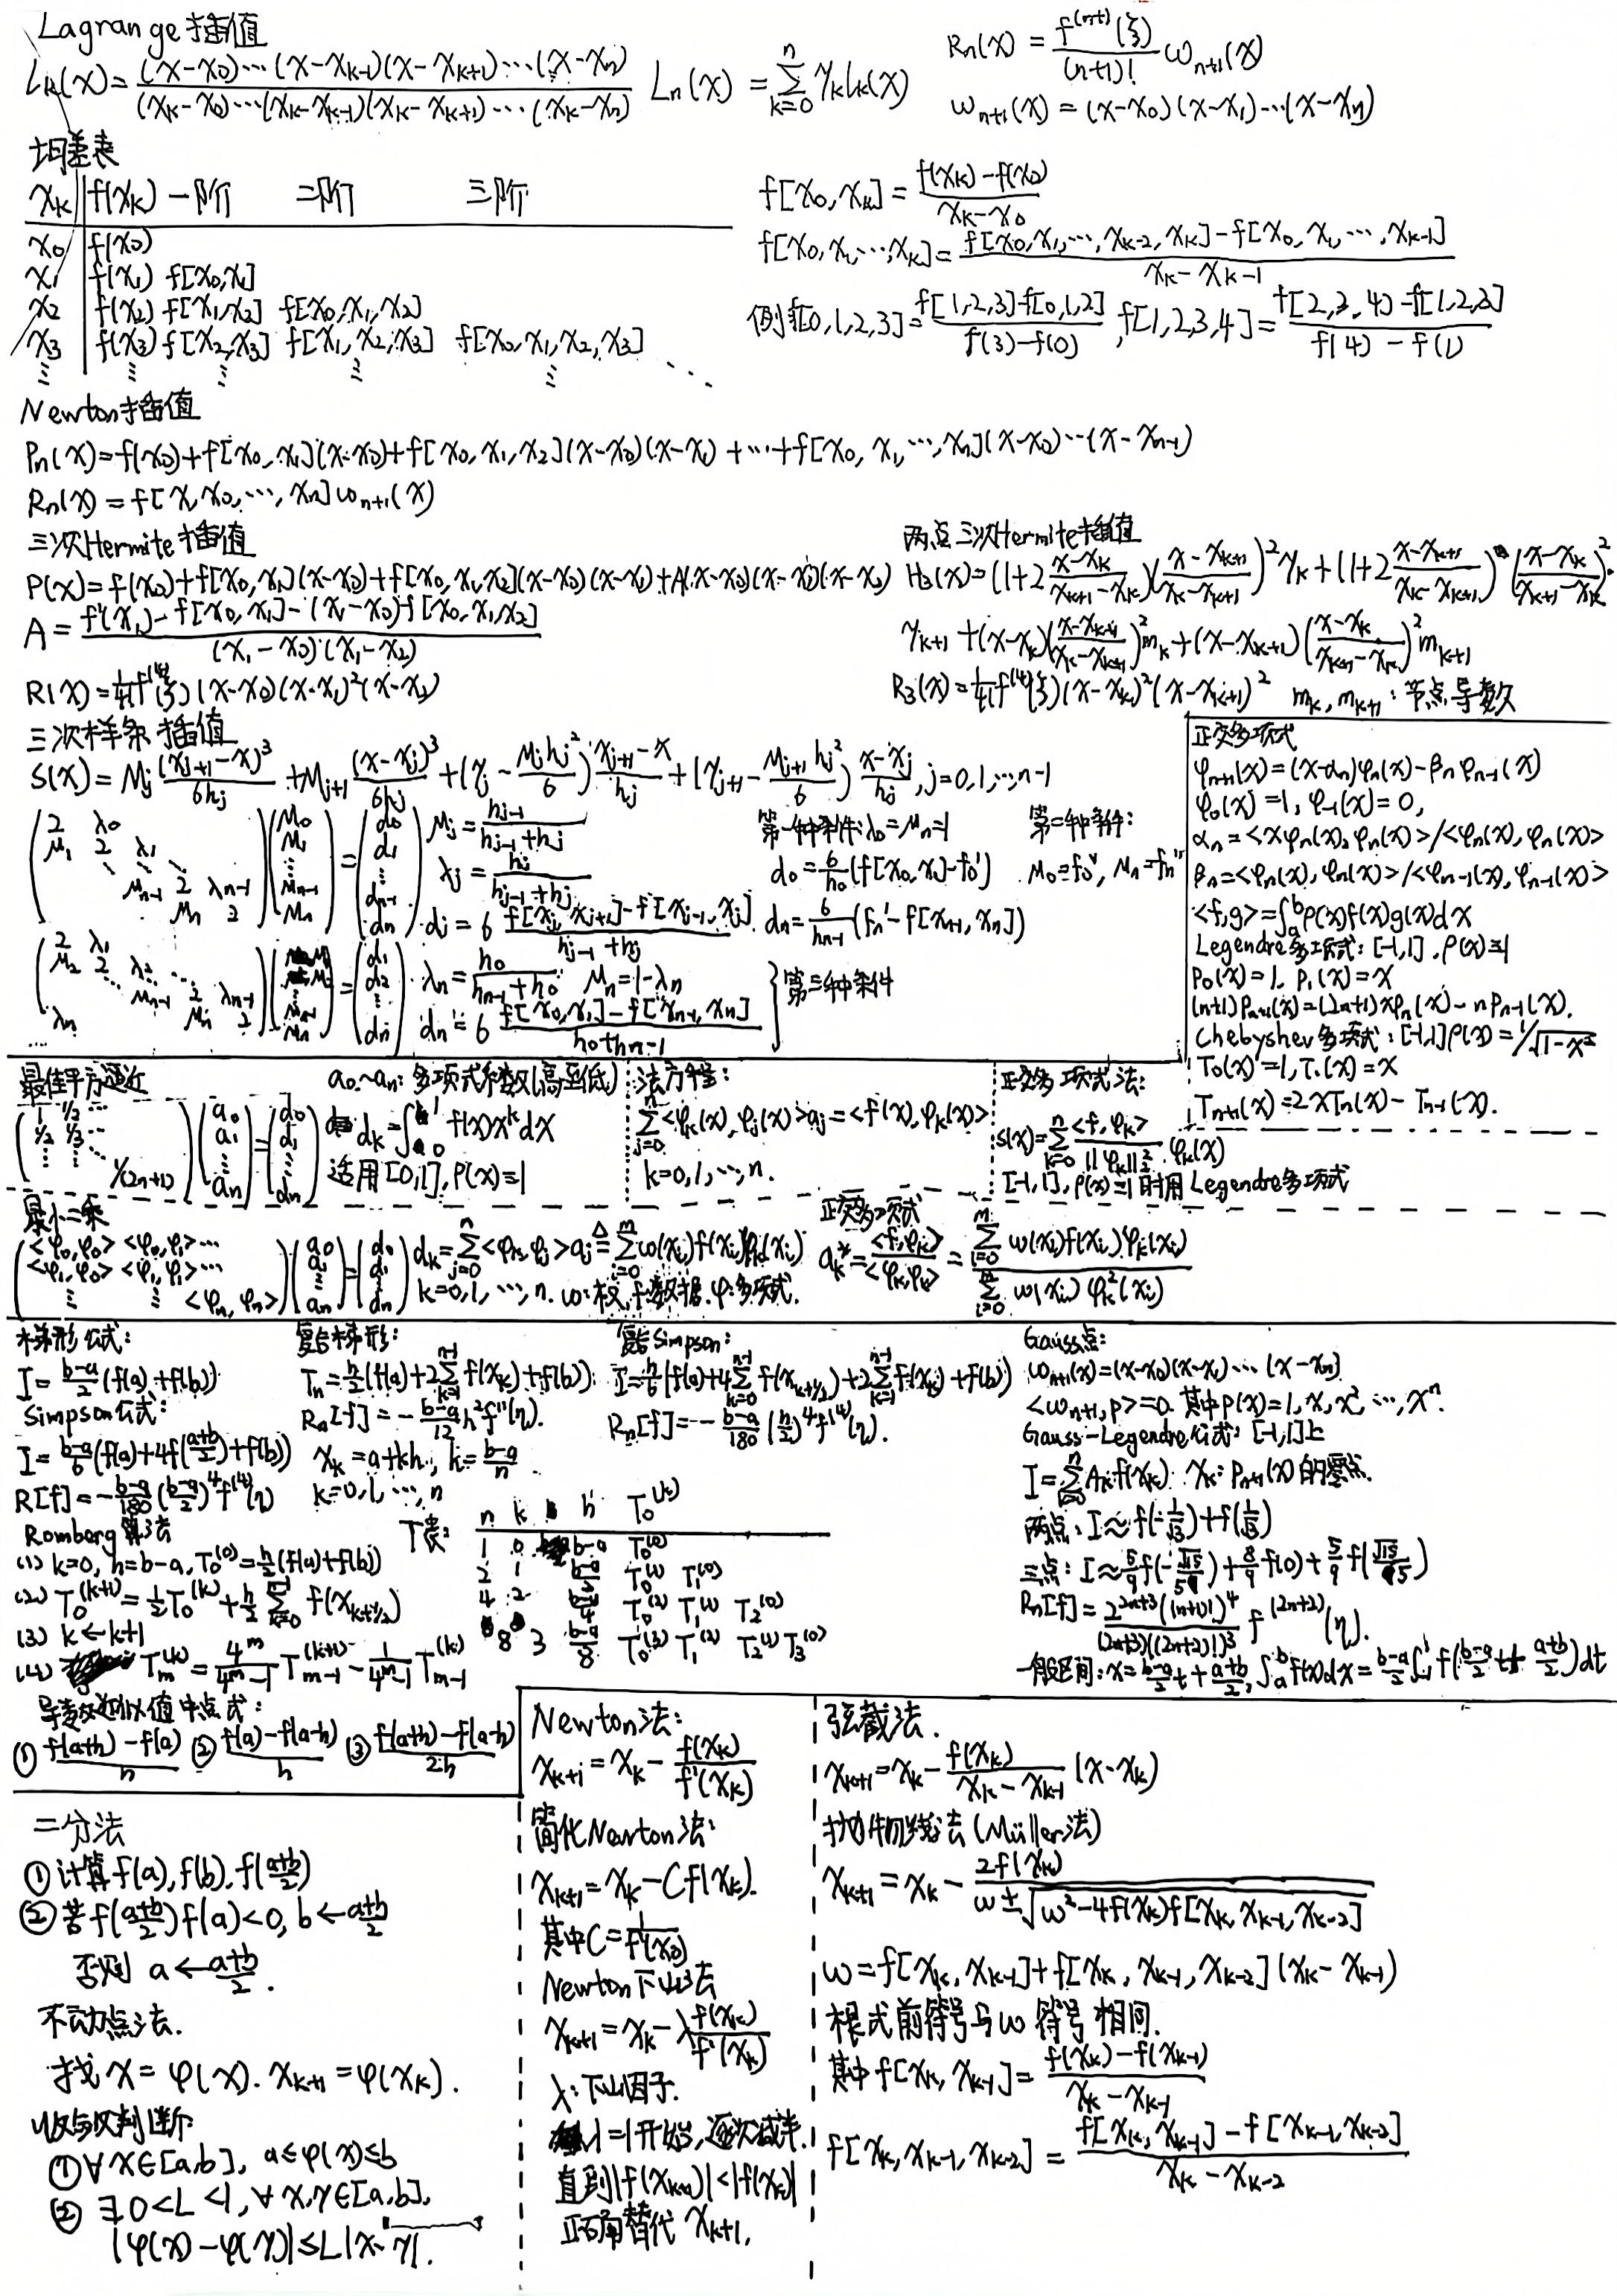 Lagrange插值
lₖ(x) = (x-x₀)⋯(x-xₖ₋₁)(x-xₖ₊₁)⋯(x-xₙ) / (xₖ-x₀)⋯(xₖ-xₖ₋₁)(xₖ-xₖ₊₁)⋯(xₖ-xₙ)  Lₙ(x) = Σ_{k=0}^{n} yₖlₖ(x)
Rₙ(x) = f^(n+1)(ξ)/(n+1)! ωₙ₊₁(x)
ωₙ₊₁(x) = (x-x₀)(x-x₁)⋯(x-xₙ)
均差表
xₖ f(xₖ) 一阶 二阶 三阶
x₀ f(x₀)
x₁ f(x₁) f[x₀,x₁]
x₂ f(x₂) f[x₁,x₂] f[x₀,x₁,x₂]
x₃ f(x₃) f[x₂,x₃] f[x₁,x₂,x₃] f[x₀,x₁,x₂,x₃]
⋮ ⋮ ⋮ ⋮ ⋮ ⋱
f[x₀,xₖ] = (f(xₖ)-f(x₀))/(xₖ-x₀)
f[x₀,x₁,⋯,xₖ] = (f[x₀,x₁,⋯,xₖ₋₂,xₖ]-f[x₀,x₁,⋯,xₖ₋₁])/(xₖ-xₖ₋₁)
例f[0,1,2,3] = (f[1,2,3]-f[0,1,2])/(f(3)-f(0)), f[1,2,3,4] = (f[2,3,4]-f[1,2,3])/(f(4)-f(1))
Newton插值
Pₙ(x) = f(x₀)+f[x₀,x₁](x-x₀)+f[x₀,x₁,x₂](x-x₀)(x-x₁)+⋯+f[x₀,x₁,⋯,xₙ](x-x₀)⋯(x-xₙ₋₁)
Rₙ(x) = f[x,x₀,⋯,xₙ]ωₙ₊₁(x)
三次Hermite插值
P(x) = f(x₀)+f[x₀,x₁](x-x₀)+f[x₀,x₁,x₂](x-x₀)(x-x₁)+A(x-x₀)(x-x₁)(x-x₂)
A = (f'(x₁)-f[x₀,x₁]-(x₁-x₀)f[x₀,x₁,x₂])/((x₁-x₀)(x₁-x₂))
R(x) = 1/4! f^(4)(ξ)(x-x₀)(x-x₁)²(x-x₂)
两点三次Hermite插值
H₃(x) = (1+2(x-xₖ)/(xₖ₊₁-xₖ))((x-xₖ₊₁)/(xₖ-xₖ₊₁))²yₖ+(1+2(x-xₖ₊₁)/(xₖ-xₖ₊₁))((x-xₖ)/(xₖ₊₁-xₖ))²·
yₖ₊₁+(x-xₖ)((x-xₖ₊₁)/(xₖ-xₖ₊₁))²mₖ+(x-xₖ₊₁)((x-xₖ)/(xₖ₊₁-xₖ))²mₖ₊₁
R₃(x) = 1/4! f^(4)(ξ)(x-xₖ)²(x-xₖ₊₁)² mₖ,mₖ₊₁:节点导数
三次样条插值
S(x) = Mⱼ(xⱼ₊₁-x)³/6hⱼ+Mⱼ₊₁(x-xⱼ)³/6hⱼ+(yⱼ-Mⱼhⱼ²/6)(xⱼ₊₁-x)/hⱼ+(yⱼ₊₁-Mⱼ₊₁hⱼ²/6)(x-xⱼ)/hⱼ, j=0,1,⋯,n-1
(2 λ₀; μ₁ 2 λ₁; ⋱; μₙ₋₁ 2 λₙ₋₁; μₙ 2)(M₀ M₁ ⋮ Mₙ₋₁ Mₙ) = (d₀ d₁ ⋮ dₙ₋₁ dₙ)
μⱼ = hⱼ₋₁/(hⱼ₋₁+hⱼ)
λⱼ = hⱼ/(hⱼ₋₁+hⱼ)
dⱼ = 6 (f[xⱼ,xⱼ₊₁]-f[xⱼ₋₁,xⱼ])/(hⱼ₋₁+hⱼ)
第一种条件:λ₀=μₙ=1
d₀ = 6/h₀(f[x₀,x₁]-f₀')
dₙ = 6/hₙ₋₁(fₙ'-f[xₙ₋₁,xₙ])
第二种条件:
M₀=f₀'', Mₙ=fₙ''
(2 λ₁; μ₂ 2 λ₂; ⋱; μₙ₋₁ 2 λₙ₋₁; λₙ μₙ 2)(M₁ M₂ ⋮ Mₙ₋₁ Mₙ) = (d₁ d₂ ⋮ dₙ)
λₙ = h₀/(hₙ₋₁+h₀) μₙ=1-λₙ
dₙ = 6 (f[x₀,x₁]-f[xₙ₋₁,xₙ])/(h₀+hₙ₋₁)
第三种条件
正交多项式
φₙ₊₁(x) = (x-αₙ)φₙ(x)-βₙφₙ₋₁(x)
φ₀(x)=1, φ₋₁(x)=0,
αₙ = <xφₙ(x),φₙ(x)>/<φₙ(x),φₙ(x)>
βₙ = <φₙ(x),φₙ(x)>/<φₙ₋₁(x),φₙ₋₁(x)>
<f,g> = ∫ₐᵇρ(x)f(x)g(x)dx
Legendre多项式:[-1,1],ρ(x)≡1
P₀(x)=1, P₁(x)=x
(n+1)Pₙ₊₁(x) = (2n+1)xPₙ(x)-nPₙ₋₁(x).
Chebyshev多项式:[-1,1]ρ(x)=1/√(1-x²)
T₀(x)=1,T₁(x)=x
Tₙ₊₁(x) = 2xTₙ(x)-Tₙ₋₁(x).
最佳平方逼近
a₀~aₙ:多项式系数(高至低)
(1 1/2 ⋯; 1/2 1/3 ⋯; ⋮ ⋮ ⋱ 1/(2n+1))(a₀ a₁ ⋮ aₙ) = (d₀ d₁ ⋮ dₙ) dₖ = ∫₀¹f(x)xᵏdx
适用[0,1],ρ(x)≡1
法方程:
Σ_{j=0}^{n}<φₖ(x),φⱼ(x)>aⱼ = <f(x),φₖ(x)>
k=0,1,⋯,n.
正交多项式法:
S(x) = Σ_{k=0}^{n} <f,φₖ>/||φₖ||₂² φₖ(x)
[-1,1],ρ(x)≡1时用Legendre多项式
最小二乘
(<φ₀,φ₀> <φ₀,φ₁>⋯; <φ₁,φ₀> <φ₁,φ₁>⋯; ⋮ ⋮ <φₙ,φₙ>)(a₀ a₁ ⋮ aₙ) = (d₀ d₁ ⋮ dₙ)
dₖ = Σ_{j=0}^{n}<φₖ,φⱼ>aⱼ ≜ Σ_{i=0}^{m}ω(xᵢ)f(xᵢ)φₖ(xᵢ)
k=0,1,⋯,n. ω:权,f:数据.φ:多项式.
正交多项式
aₖ* = <f,φₖ>/<φₖ,φₖ> = Σ_{i=0}^{m}ω(xᵢ)f(xᵢ)φₖ(xᵢ)/Σ_{i=0}^{m}ω(xᵢ)φₖ²(xᵢ)
梯形公式:
I = (b-a)/2(f(a)+f(b))
Simpson公式:
I = (b-a)/6(f(a)+4f((a+b)/2)+f(b))
R[f] = -(b-a)/180((b-a)/2)⁴f^(4)(η)
复合梯形:
Tₙ = h/2(f(a)+2Σ_{k=1}^{n-1}f(xₖ)+f(b))
Rₙ[f] = -(b-a)/12 h²f''(η).
xₖ=a+kh, h=(b-a)/n
k=0,1,⋯,n
复合Simpson:
I = h/6(f(a)+4Σ_{k=0}^{n-1}f(xₖ₊₁/₂)+2Σ_{k=1}^{n-1}f(xₖ)+f(b))
Rₙ[f] = -(b-a)/180(h/2)⁴f^(4)(η).
Gauss点:
ωₙ₊₁(x) = (x-x₀)(x-x₁)⋯(x-xₙ)
<ωₙ₊₁,p>=0. 其中p(x)=1,x,x²,⋯,xⁿ.
Gauss-Legendre公式:[-1,1]上
I = Σ_{k=0}^{n}Aₖf(xₖ) xₖ:Pₙ₊₁(x)的零点.
两点:I≈f(-1/√3)+f(1/√3)
三点:I≈5/9f(-√15/5)+8/9f(0)+5/9f(√15/5)
Rₙ[f] = 2^(2n+3)((n+1)!)⁴/((2n+3)((2n+2)!)³) f^(2n+2)(η).
一般区间:x=(b-a)/2 t+(a+b)/2, ∫ₐᵇf(x)dx = (b-a)/2∫₋₁¹f((b-a)/2 t+(a+b)/2)dt
Romberg算法
(1) k=0, h=b-a, T₀^(0)=h/2(f(a)+f(b))
(2) T₀^(k+1) = 1/2T₀^(k)+h/2Σ_{k=0}^{n-1}f(xₖ₊₁/₂)
(3) k←k+1
(4) Tₘ^(k) = 4ᵐ/(4ᵐ-1)Tₘ₋₁^(k+1)-1/(4ᵐ-1)Tₘ₋₁^(k)
T表:
n k h T₀^(k)
1 0 b-a T₀^(0)
2 1 (b-a)/2 T₀^(1) T₁^(0)
4 2 (b-a)/4 T₀^(2) T₁^(1) T₂^(0)
8 3 (b-a)/8 T₀^(3) T₁^(2) T₂^(1) T₃^(0)
导数近似值中点式:
①(f(a+h)-f(a))/h ②(f(a)-f(a-h))/h ③(f(a+h)-f(a-h))/2h
二分法
①计算f(a),f(b),f((a+b)/2)
②若f((a+b)/2)f(a)<0, b←(a+b)/2
否则 a←(a+b)/2.
不动点法.
找x=φ(x). xₖ₊₁=φ(xₖ).
收敛判断
①∀x∈[a,b], a≤φ(x)≤b
②∃0<L<1,∀x,y∈[a,b],
|φ(x)-φ(y)|≤L|x-y|.
Newton法:
xₖ₊₁ = xₖ-f(xₖ)/f'(xₖ)
简化Newton法:
xₖ₊₁=xₖ-Cf(xₖ).
其中C=1/f'(x₀)
Newton下山法
xₖ₊₁ = xₖ-λf(xₖ)/f'(xₖ)
λ:下山因子.
λ=1开始,逐次减半.
直到|f(xₖ₊₁)|<|f(xₖ)|
替代xₖ₊₁.
弦截法.
xₖ₊₁ = xₖ-f(xₖ)/(xₖ-xₖ₋₁)(x-xₖ)
抛物线法(Müller法)
xₖ₊₁ = xₖ-2f(xₖ)/(ω±√(ω²-4f(xₖ)f[xₖ,xₖ₋₁,xₖ₋₂]))
ω=f[xₖ,xₖ₋₁]+f[xₖ,xₖ₋₁,xₖ₋₂](xₖ-xₖ₋₁)
根式前符号与ω符号相同.
其中f[xₖ,xₖ₋₁] = (f(xₖ)-f(xₖ₋₁))/(xₖ-xₖ₋₁)
f[xₖ,xₖ₋₁,xₖ₋₂] = (f[xₖ,xₖ₋₁]-f[xₖ₋₁,xₖ₋₂])/(xₖ-xₖ₋₂)